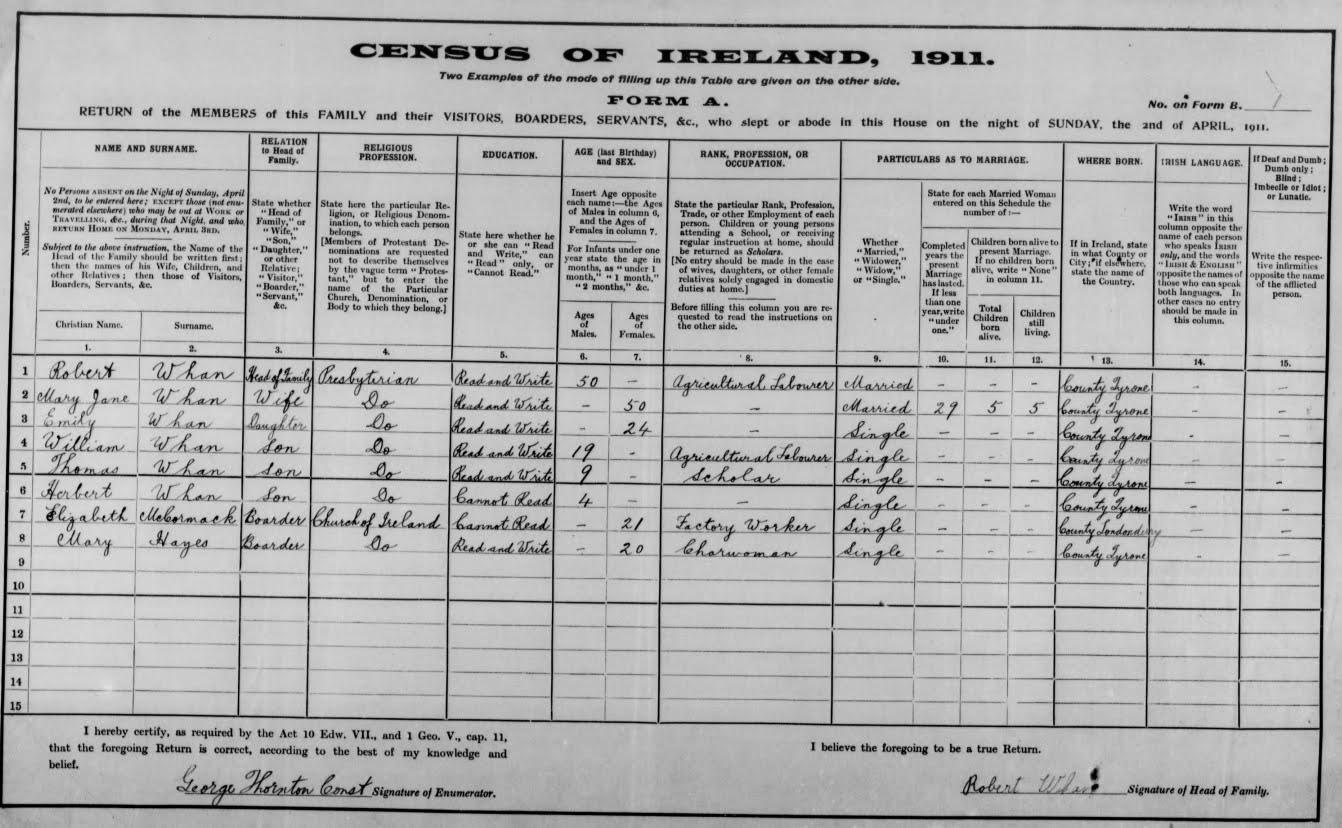 CENSUS OF IRELAND, 1911.
Two Examples of the mode of filling up this Table are given on the other side.
FORM A.
No. on Form B. 1
RETURN of the MEMBERS of this FAMILY and their VISITORS, BOARDERS, SERVANTS, &c., who slept or abode in this House on the night of SUNDAY, the 2nd of APRIL, 1911.
Number.
NAME AND SURNAME.
No Persons ABSENT on the Night of Sunday, April
2nd, to be entered here; EXCEPT those (not enu-
merated elsewhere) who may be out at WORK or
TRAVELLING, &c., during that Night, and who
RETURN HOME ON MONDAY, APRIL 3RD.
Subject to the above instruction, the Name of the
Head of the Family should be written first;
then the names of his Wife, Children, and
other Relatives; then those of Visitors,
Boarders, Servants, &c.
Christian Name.
Surname.
RELATION
to Head of
Family.
State whether
"Head of
Family," or
"Wife,"
"Son,"
"Daughter,"
or other
Relative;
"Visitor,"
"Boarder,"
"Servant,"
&c.
RELIGIOUS
PROFESSION.
State here the particular Re-
ligion, or Religious Denom-
ination, to which each person
belongs.
[Members of Protestant De-
nominations are requested
not to describe themselves
by the vague term "Protes-
tant," but to enter the
name of the Particular
Church, Denomination, or
Body to which they belong.]
EDUCATION.
State here whether he
or she can "Read
and Write," can
"Read" only, or
"Cannot Read."
AGE (last Birthday)
and SEX.
Insert Age opposite
each name:—the Ages
of Males in column 6,
and the Ages of
Females in column 7.
For Infants under one
year state the age in
months, as "under 1
month," "1 month,"
"2 months," &c.
Ages
of
Males.
Ages
of
Females.
RANK, PROFESSION, OR
OCCUPATION.
State the particular Rank, Profession,
Trade, or other Employment of each
person. Children or young persons
attending a School, or receiving
regular instruction at home, should
be returned as Scholars.
[No entry should be made in the case
of wives, daughters, or other female
relatives solely engaged in domestic
duties at home.]
Before filling this column you are re-
quested to read the instructions on
the other side.
PARTICULARS AS TO MARRIAGE.
Whether
"Married,"
"Widower,"
"Widow,"
or "Single."
State for each Married Woman
entered on this Schedule the
number of:—
Completed
years the
present
Marriage
has lasted.
If less
than one
year, write
"under
one."
Children born alive to
present Marriage.
If no children born
alive, write "None"
in column 11.
Total
Children
born
alive.
Children
still
living.
WHERE BORN.
If in Ireland, state
in what County or
City; if elsewhere,
state the name of
the Country.
IRISH LANGUAGE.
Write the word
"IRISH" in this
column opposite the
name of each person
who speaks IRISH
only, and the words
"IRISH & ENGLISH"
opposite the names of
those who can speak
both languages. In
other cases no entry
should be made in
this column.
If Deaf and Dumb;
Dumb only;
Blind;
Imbecile or Idiot;
or Lunatic.
Write the respec-
tive infirmities
opposite the name
of the afflicted
person.
1. 2. 3. 4. 5. 6. 7. 8. 9. 10. 11. 12. 13. 14. 15.
1 Robert Whan Head of Family Presbyterian Read and Write 50 – Agricultural Labourer Married – – – County Tyrone – –
2 Mary Jane Whan Wife Do Read and Write – 50 – Married 29 5 5 County Tyrone – –
3 Emily Whan Daughter Do Read and Write – 24 – Single – – – County Tyrone – –
4 William Whan Son Do Read and Write 19 – Agricultural Labourer Single – – – County Tyrone – –
5 Thomas Whan Son Do Read and Write 9 – Scholar Single – – – County Tyrone – –
6 Herbert Whan Son Do Cannot Read 4 – – Single – – – County Tyrone – –
7 Elizabeth McCormack Boarder Church of Ireland Cannot Read – 21 Factory Worker Single – – – County Londonderry – –
8 Mary Hayes Boarder Do Read and Write – 20 Charwoman Single – – – County Tyrone – –
9
10
11
12
13
14
15
I hereby certify, as required by the Act 10 Edw. VII., and 1 Geo. V., cap. 11,
that the foregoing Return is correct, according to the best of my knowledge and
belief.
George Thornton Const Signature of Enumerator.
I believe the foregoing to be a true Return.
Robert Whan Signature of Head of Family.